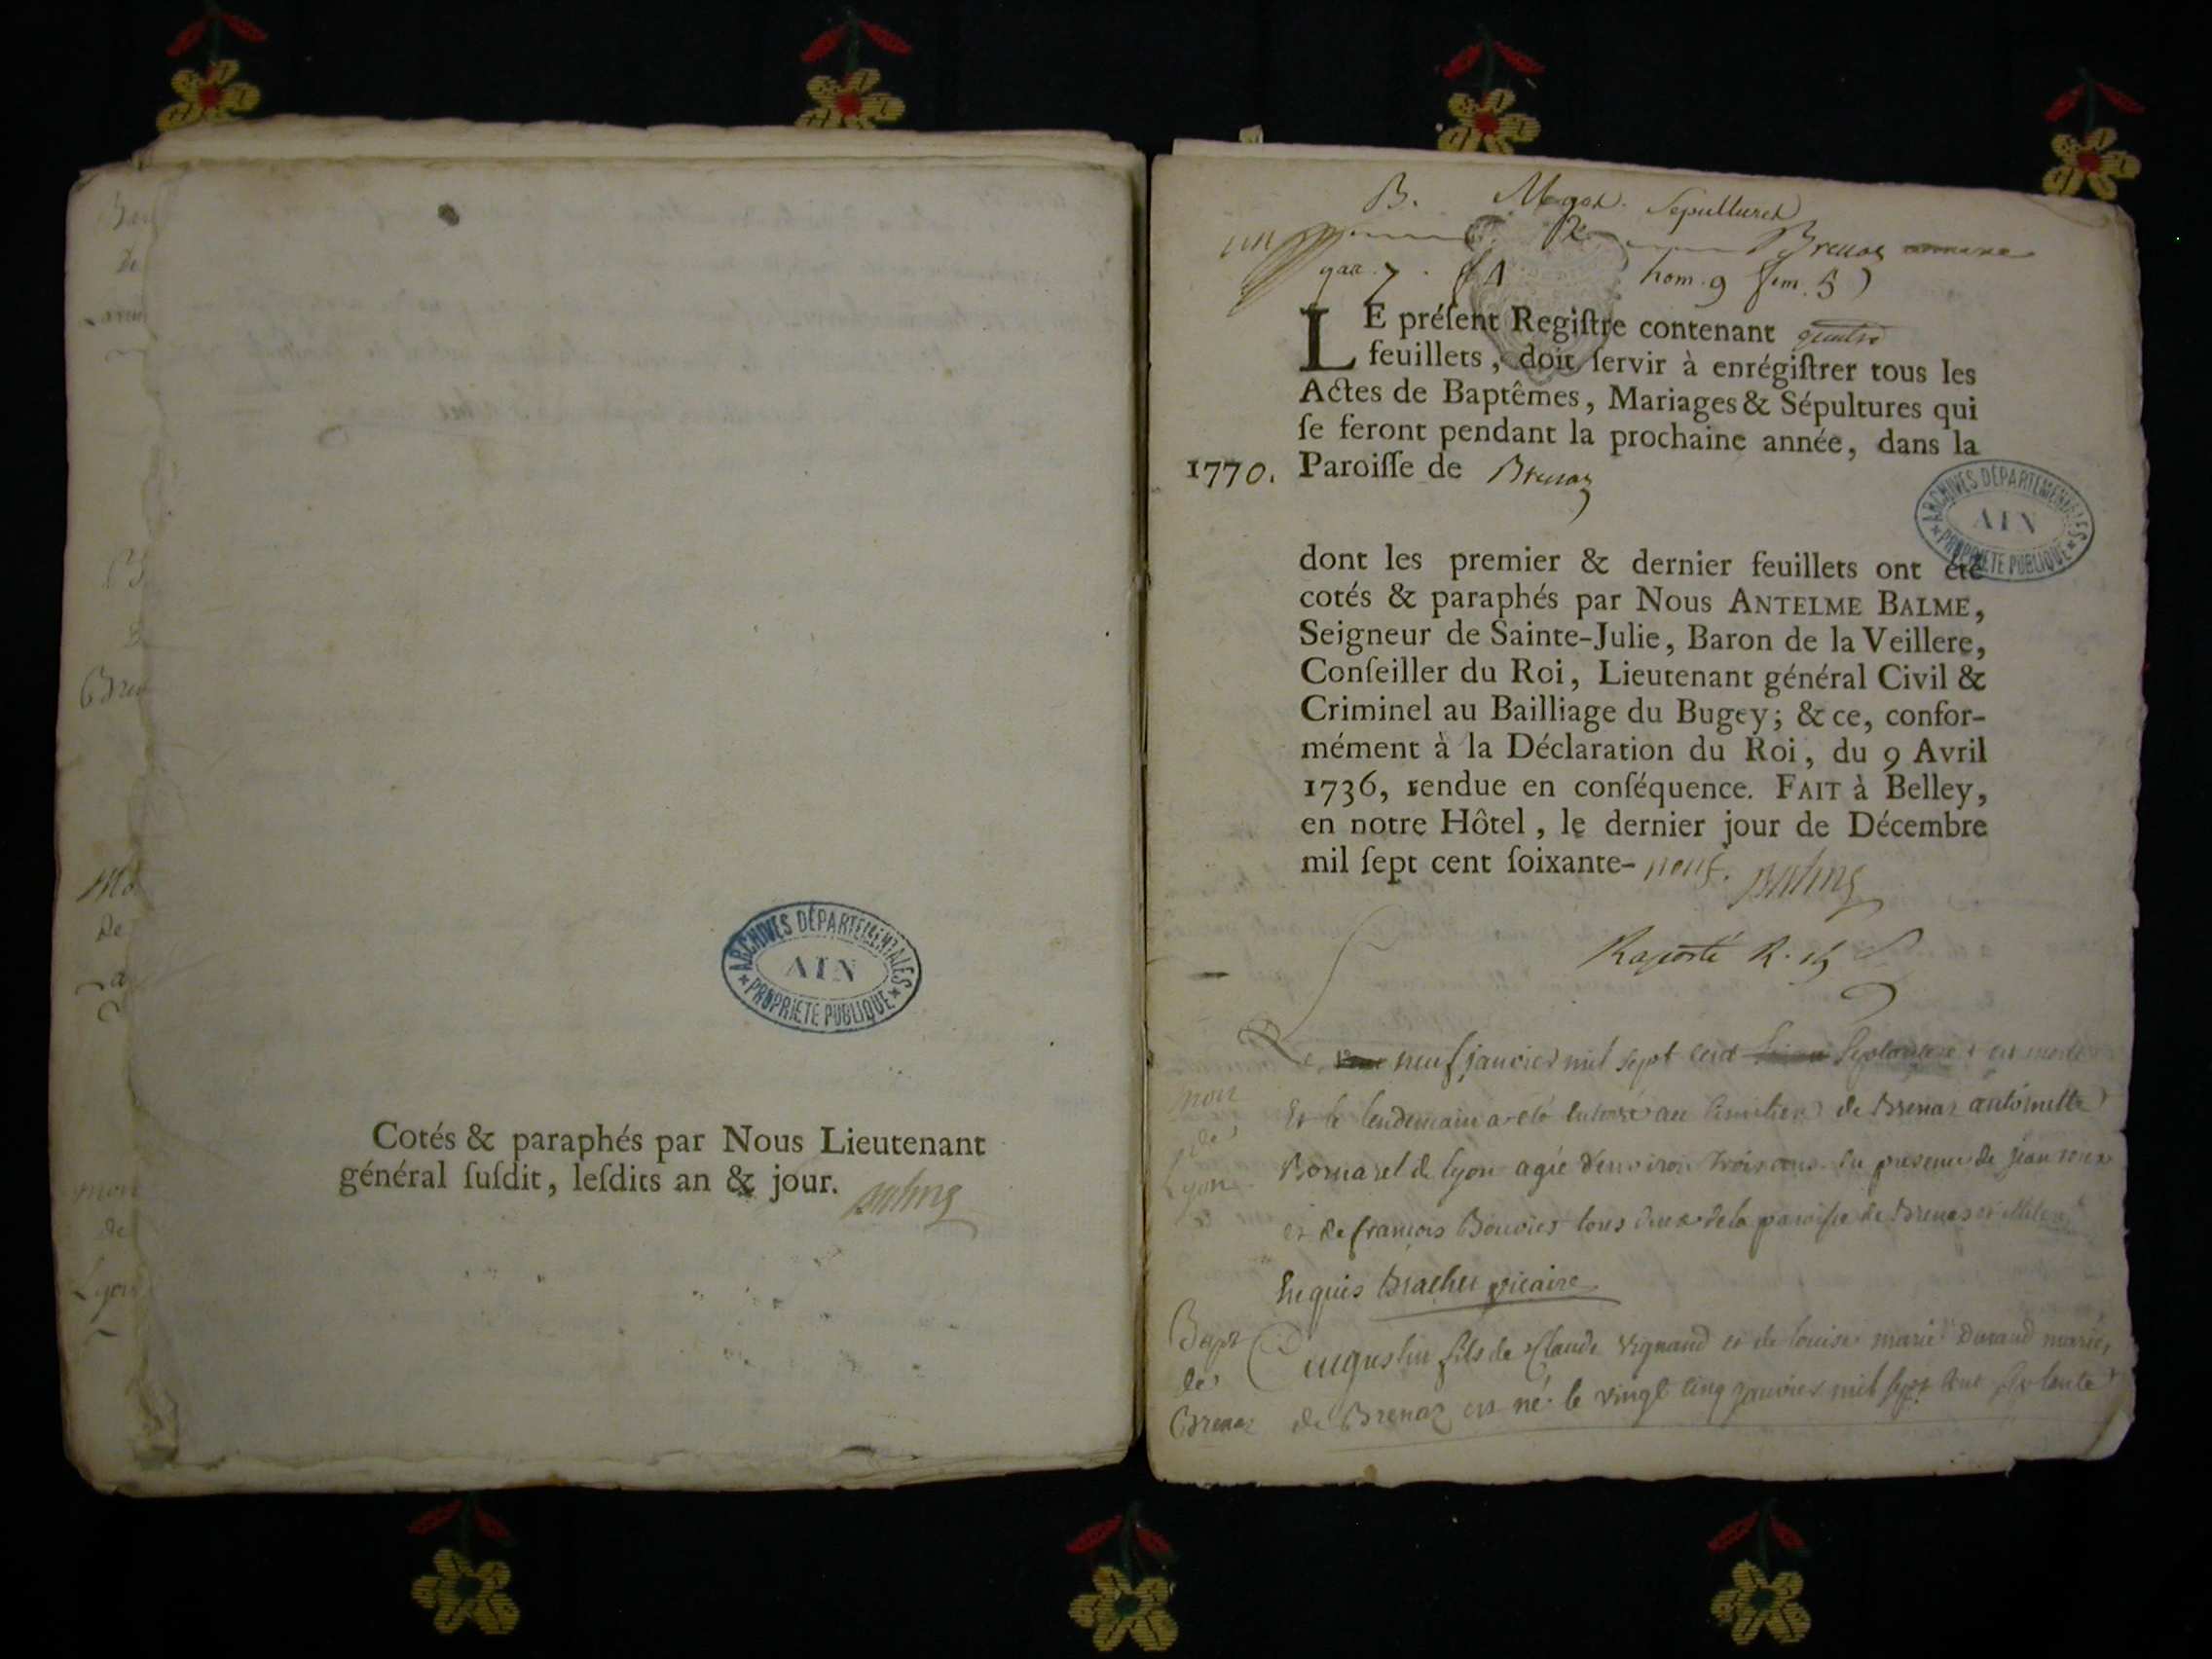 ARCHIVES DÉPARTEMENTALES
AIN
PROPRIETE PUBLIQUE
Cotés & paraphés par Nous Lieutenant
général ſuſdit, leſdits an & jour.
Balme
de
Lyon
B. Sepultures
Brenaz
gar. 7. f 1 hom. 9 fem. 5
LE préſent Regiſtre contenant quatre
feuillets, doit ſervir à enrégiſtrer tous les
Actes de Baptêmes, Mariages & Sépultures qui
ſe feront pendant la prochaine année, dans la
1770. Paroiſſe de Brenaz
ARCHIVES DÉPARTEMENTALES
AIN
PROPRIETE PUBLIQUE
dont les premier & dernier feuillets ont été
cotés & paraphés par Nous ANTELME BALME,
Seigneur de Sainte-Julie, Baron de la Veillere,
Conſeiller du Roi, Lieutenant général Civil &
Criminel au Bailliage du Bugey; & ce, confor-
mément à la Déclaration du Roi, du 9 Avril
1736, rendue en conſéquence. FAIT à Belley,
en notre Hôtel, le dernier jour de Décembre
mil ſept cent ſoixante-neuf. Balme
Raporté
Le neuf janvier mil sept cent septante est morte
et le lendemain a eté enterré au cimetiere de Brenaz antoinette
mort
de
Lyon
Bornarel de lyon agée d'environ trois ans en presence de jean
et de francois Bouvier tous deux de la paroisse de Brenaz
Enquis Brachet vicaire
Bapt
de
Brenaz
augustin fils de Claude vignand et de louise marie Durand mariés
de Brenaz est né le vingt cinq janvier mil sept cent septante